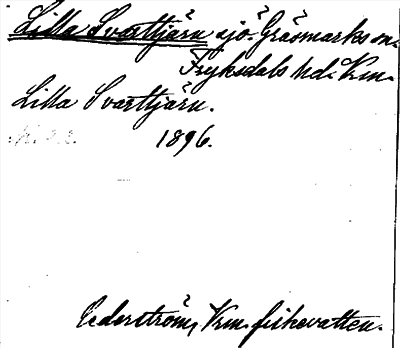 Lilla Svarttjärn sjö. Gräsmarks sn.
Fryksdals hd. Vrm.
Lilla Svarttjärn.
1896.
Cederström, Vrm. fiskevatten.